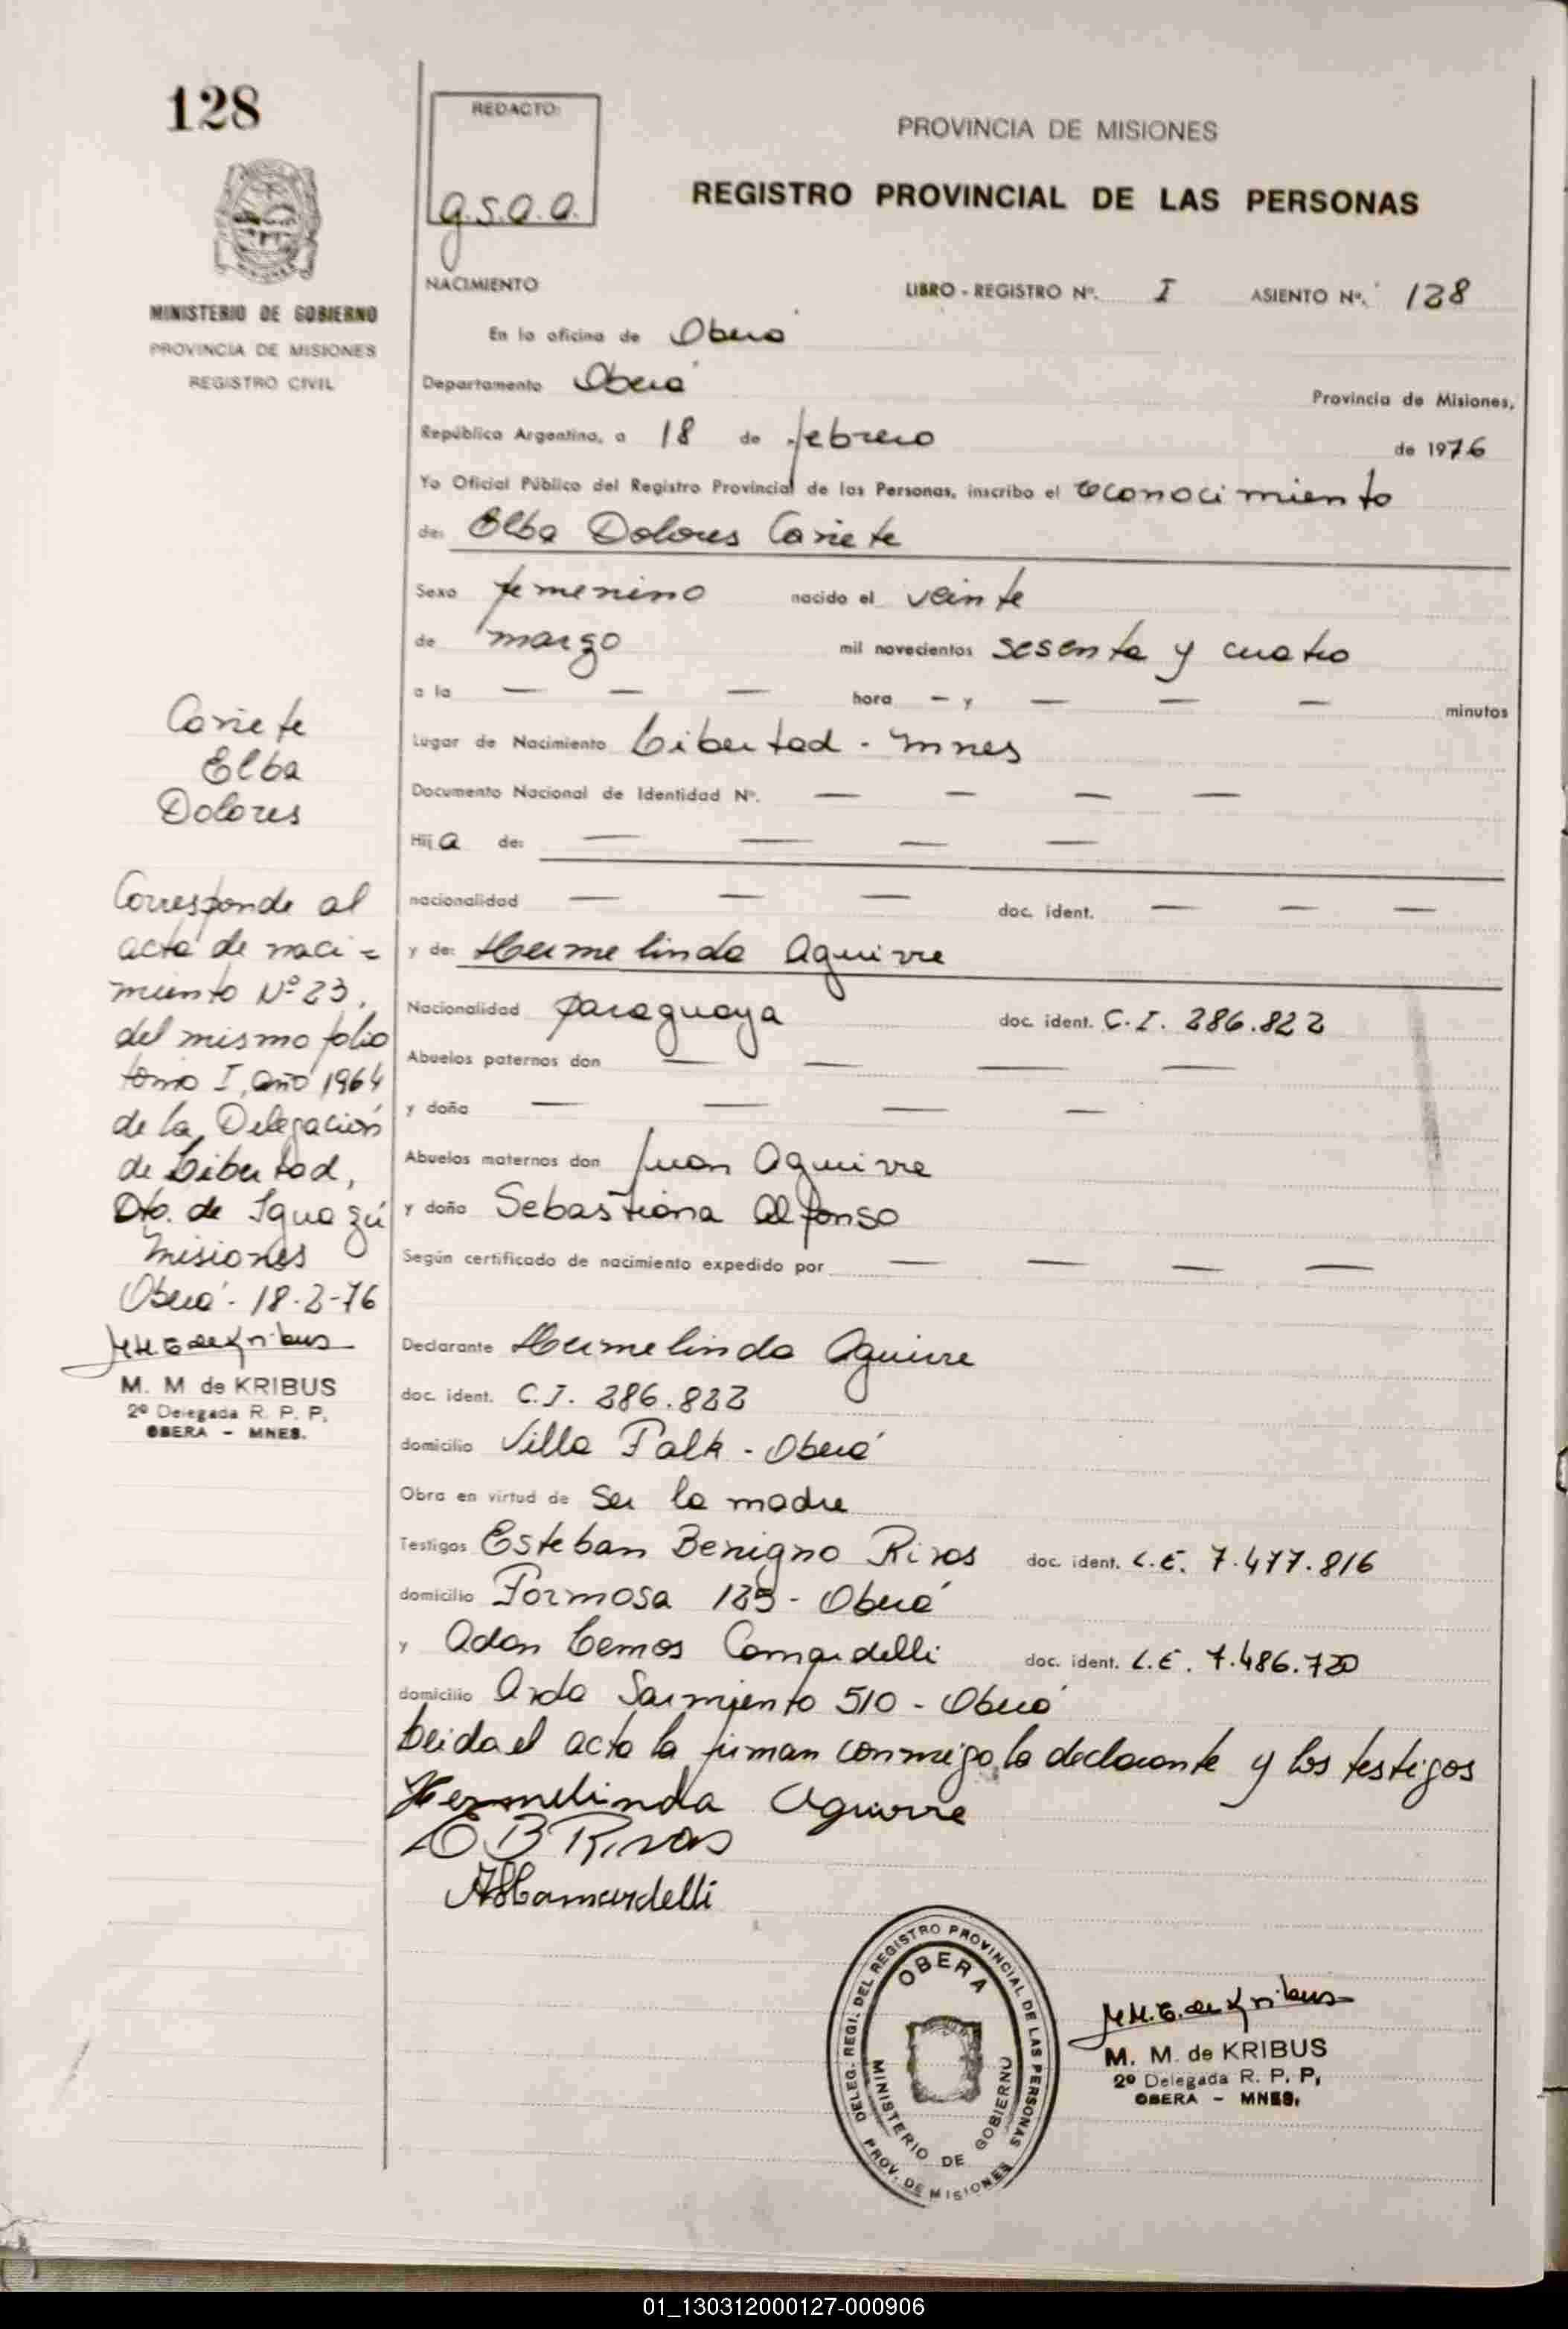 128
MINISTERIO DE GOBIERNO
PROVINCIA DE MISIONES
REGISTRO CIVIL
REDACTO:
g.s.a.a.
PROVINCIA DE MISIONES
REGISTRO PROVINCIAL DE LAS PERSONAS
NACIMIENTO LIBRO - REGISTRO Nº. I ASIENTO Nº. 128
En la oficina de Oberá
Departamento Oberá Provincia de Misiones,
República Argentina, a 18 de febrero de 1976
Yo Oficial Público del Registro Provincial de las Personas, inscribo el reconocimiento
de: Elba Dolores Cañete
Sexo femenino nacido el veinte
de marzo mil novecientos sesenta y cuatro
a la — — — hora — y — — — minutos
Lugar de Nacimiento Libertad - Mnes
Documento Nacional de Identidad Nº. — — — —
Hija de: — — — —
nacionalidad — — — doc. ident. — — —
y de: Hermelinda Aguirre
Nacionalidad paraguaya doc. ident. C.I. 286.822
Abuelos paternos don — — — —
y doña — — — —
Abuelos maternos don Juan Aguirre
y doña Sebastiana Alfonso
Según certificado de nacimiento expedido por — — — —
Declarante Hermelinda Aguirre
doc. ident. C.I. 286.822
domicilio Villa Falk - Oberá
Obra en virtud de ser la madre
Testigos Esteban Benigno Rivas doc. ident. L.E. 7.477.816
domicilio Formosa 125 - Oberá
y Adan Lemos Camardelli doc. ident. L.E. 7.486.720
domicilio Avda Sarmiento 510 - Oberá
Leida el acta la firman conmigo la declarante y los testigos
Hermelinda Aguirre
E B Rivas
Camardelli
Cañete
Elba
Dolores
Corresponde al
acta de naci=
miento Nº 23,
del mismo folio
tomo I, año 1964
de la Delegación
de Libertad,
Dto. de Iguazú
Misiones
Oberá - 18-2-76
M.M.E. de Kribus
M. M de KRIBUS
2º Delegada R. P. P.
OBERA - MNES.
DELEG. REGI. DEL REGISTRO PROVINCIAL DE LAS PERSONAS
OBERA
MINISTERIO DE GOBIERNO
PROV. DE MISIONES
M.M.E. de Kribus
M. M. de KRIBUS
2º Delegada R. P. P.
OBERA - MNES.
01_130312000127-000906